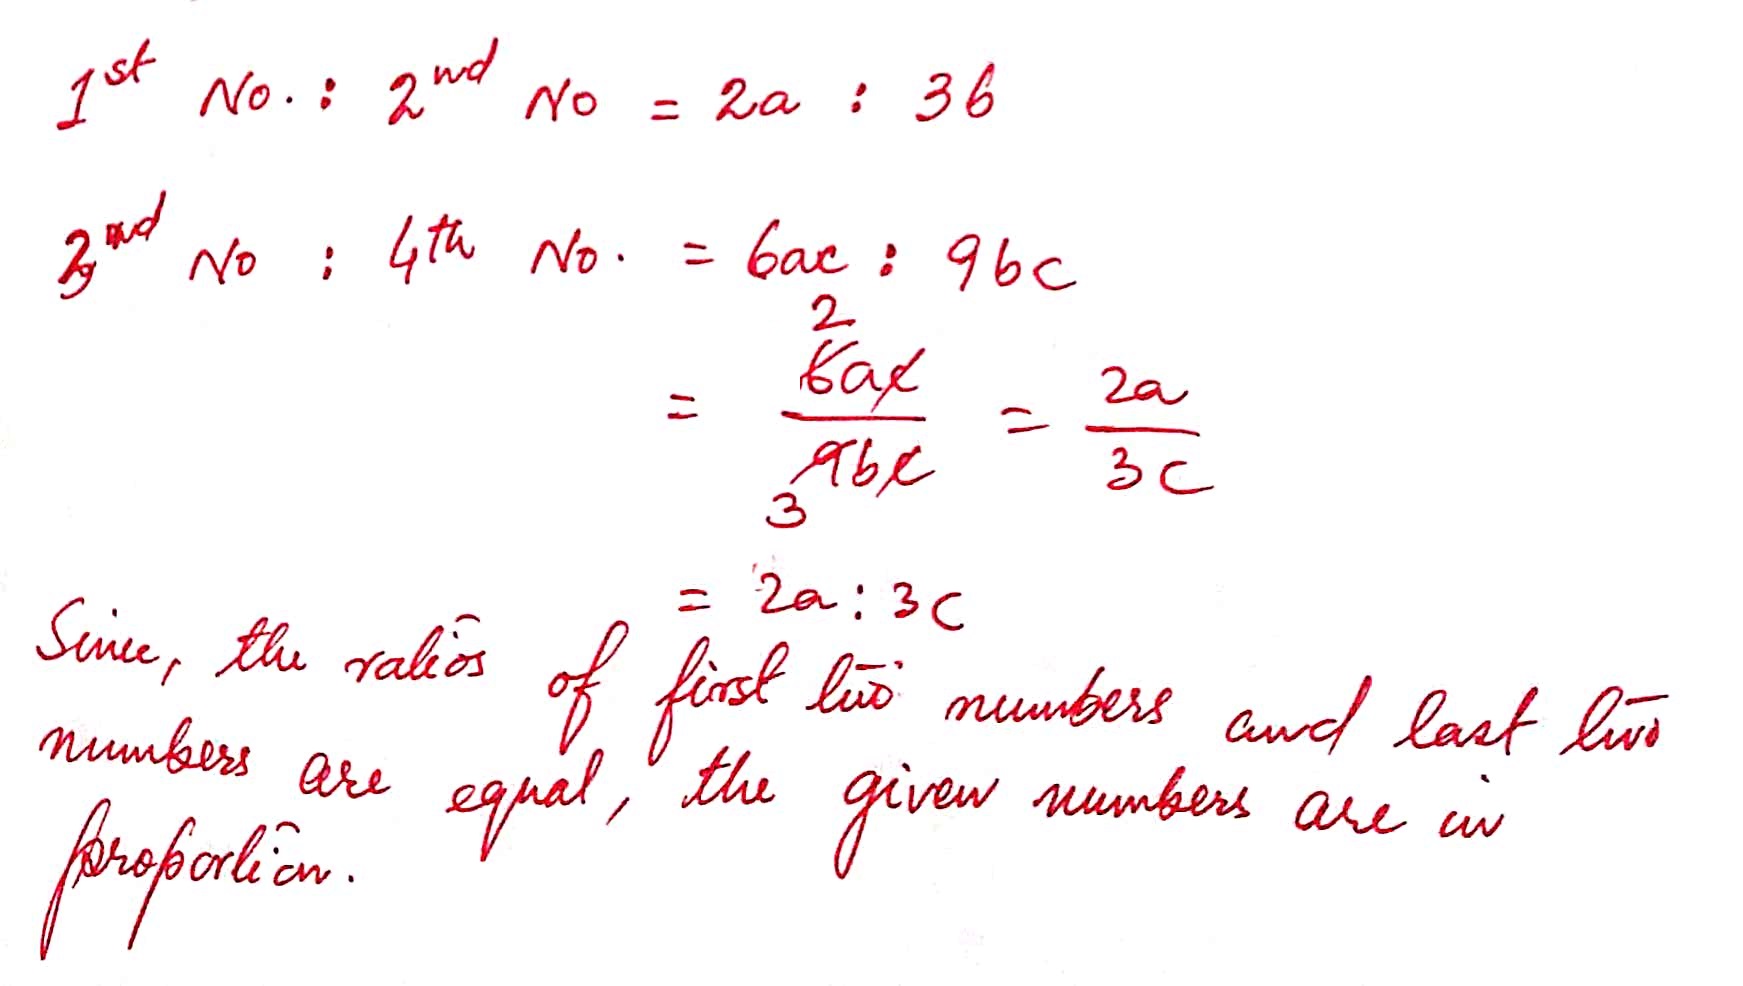 1st No. : 2nd No = 2a : 3b
3nd No : 4th No. = 6ac : 9bc
2
= 6ac/9bc = 2a/3c
3
= 2a : 3c
Since, the ratios of first two numbers and last two
numbers are equal, the given numbers are in
proportion.